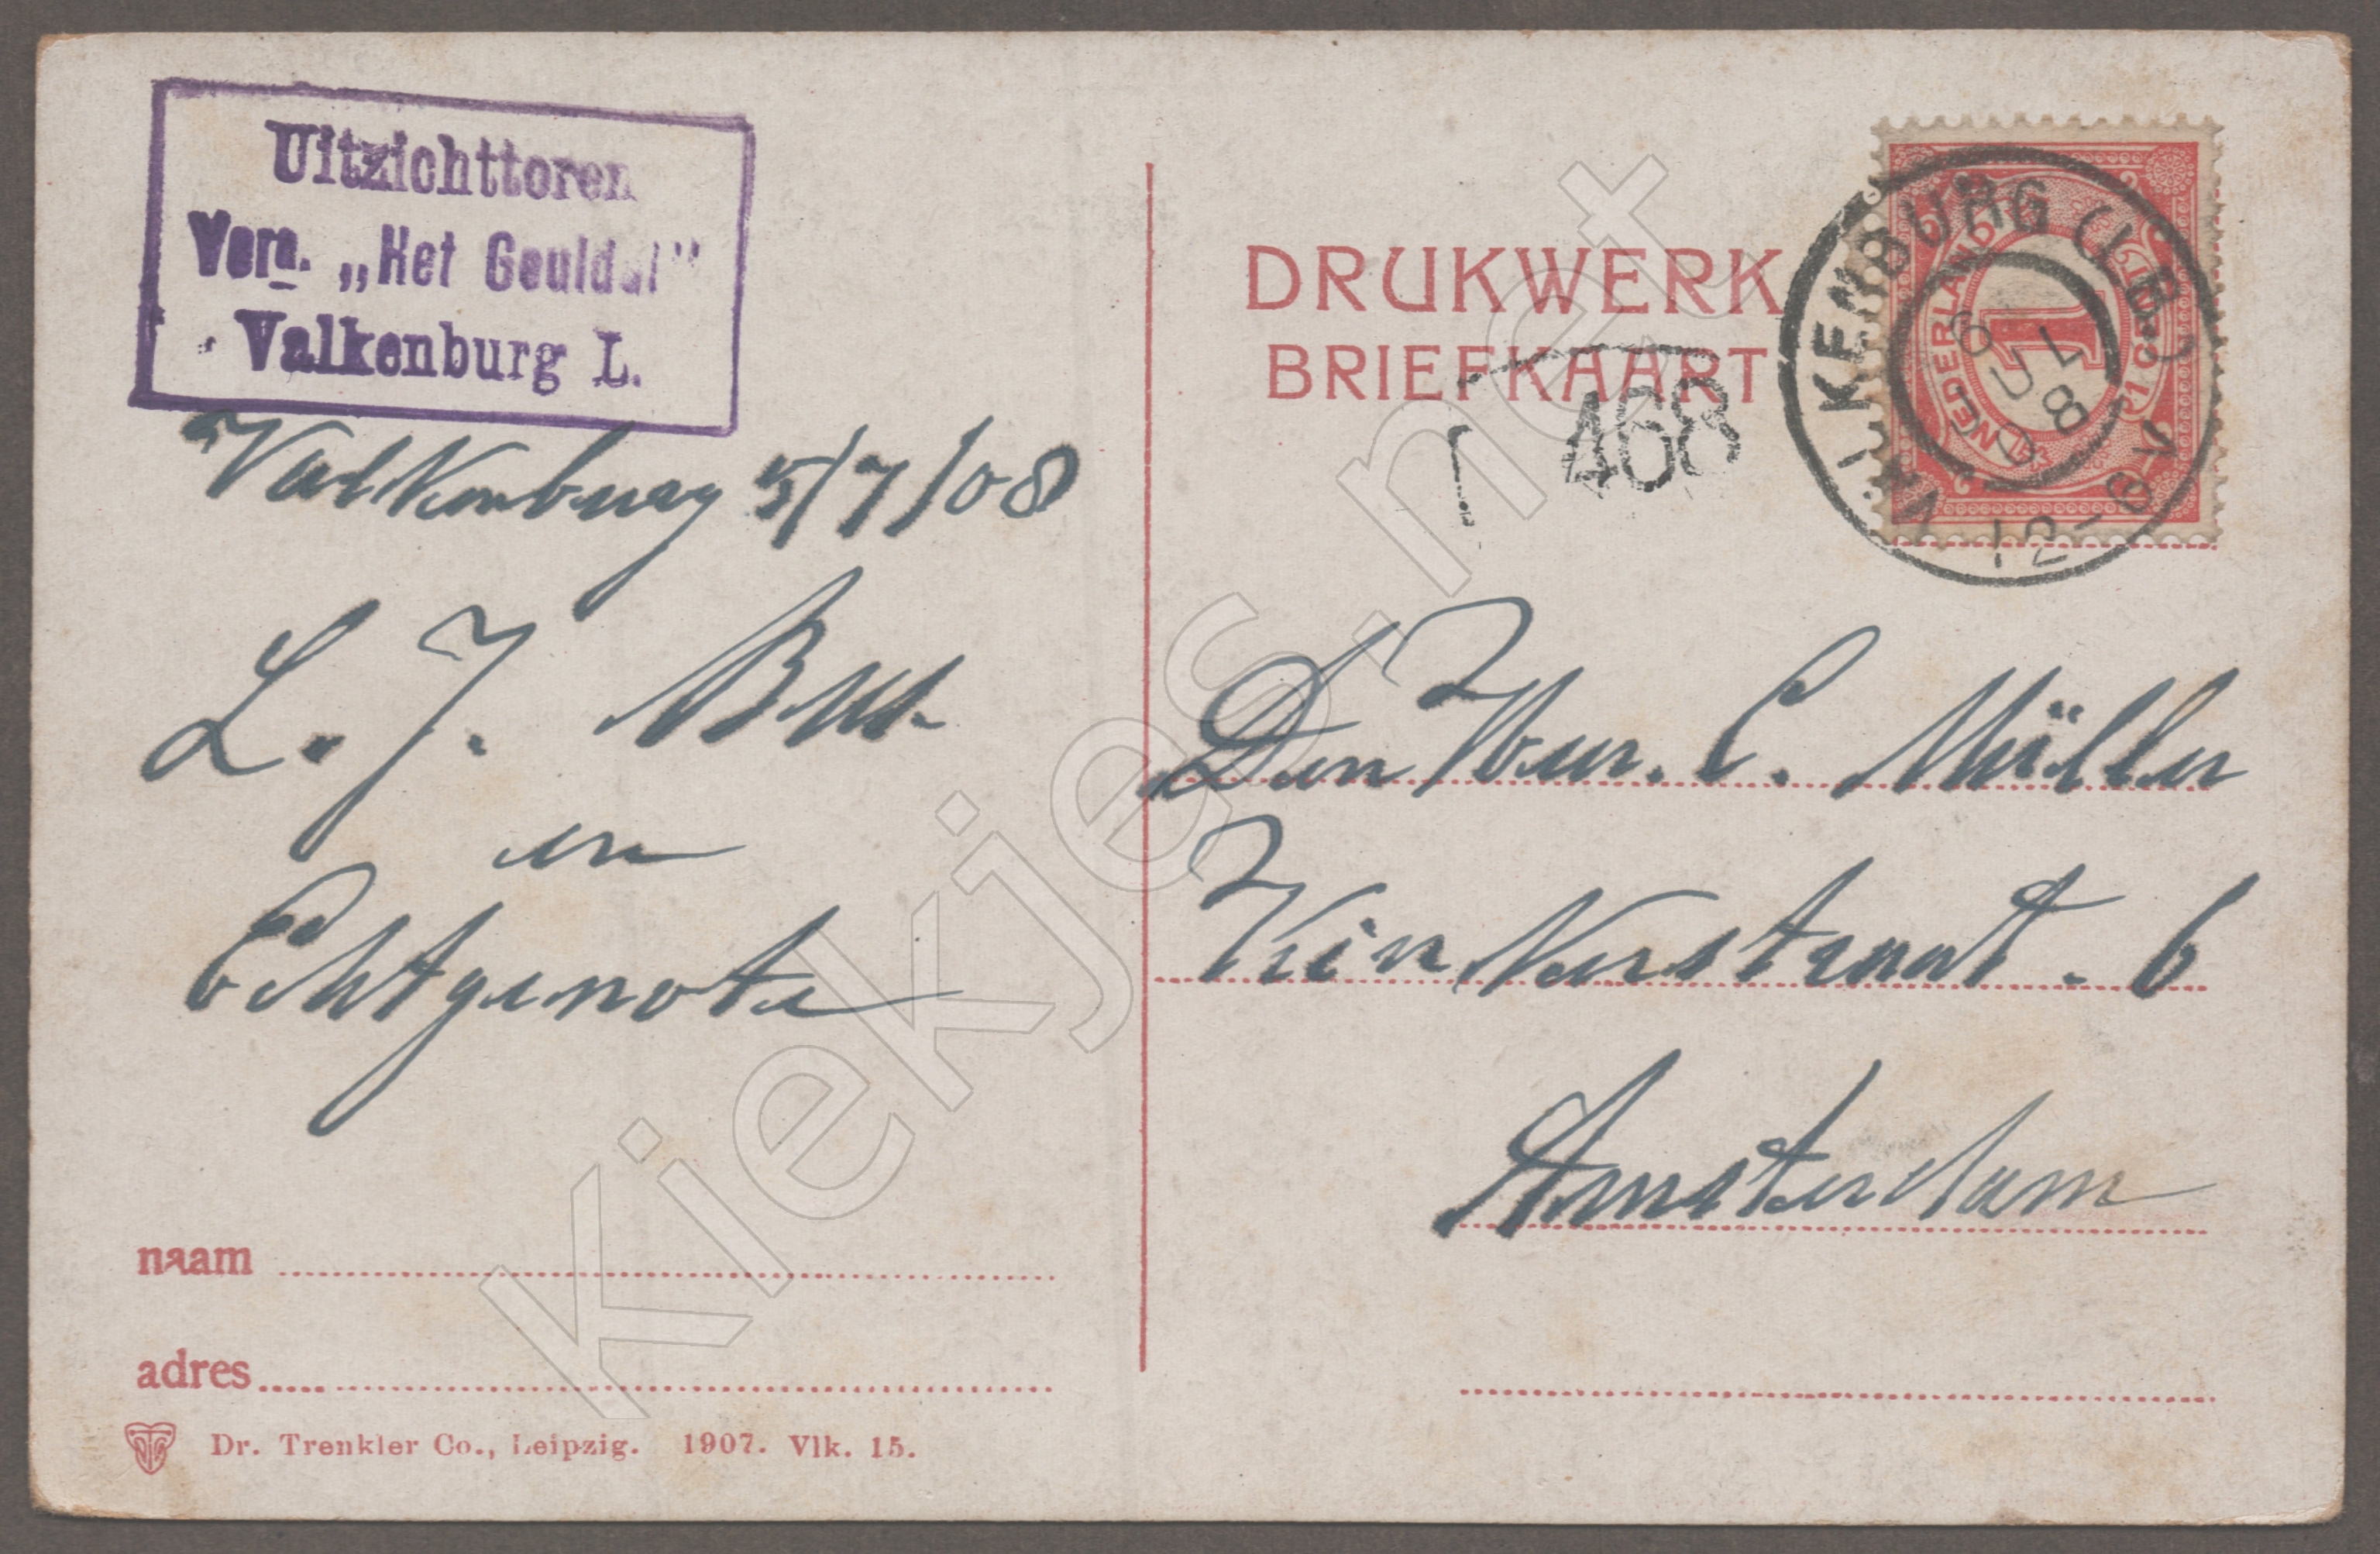 Uitzichttoren
Vern. „Het Geuldal"
Valkenburg L.
Valkenburg 5/7/08
L. J. Bus
en
Echtgenote
naam
adres
Dr. Trenkler Co., Leipzig. 1907. Vlk. 15.
DRUKWERK
BRIEFKAART
468
VALKENBURG (LB.)
6 7 08
VM 12-6 N
NEDERLAND
1
1 CENT
Den Heer. C. Müller
Kinkerstraat. 6
Amsterdam
Kiekjes.net